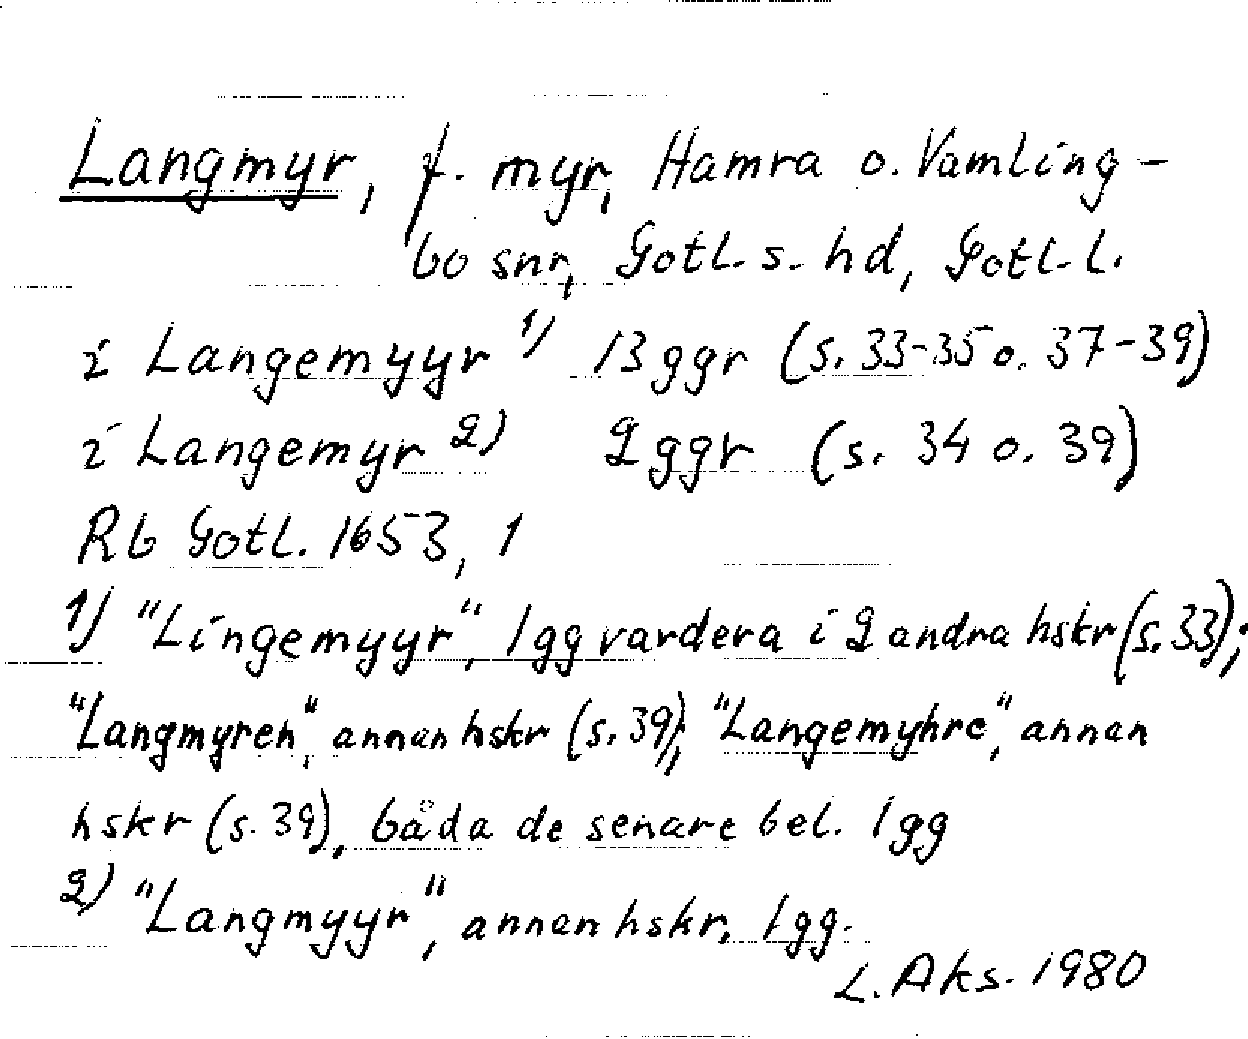 Langmyr, f. myr, Hamra o. Vamling-
bo snr, Gotl. s. hd, Gotl. l.
i Langemyyr 1) 13 ggr (s. 33-35 o. 37-39)
i Langemyr 2) 2 ggr (s. 34 o. 39)
Rb Gotl. 1653, 1
1) "Lingemyyr", 1 gg vardera i 2 andra hskr (s. 33);
"Langmyren", annan hskr (s. 39); "Langemyhre", annan
hskr (s. 39), båda de senare bel. 1 gg
2) "Langmyyr", annan hskr, 1 gg.
L. Aks. 1980